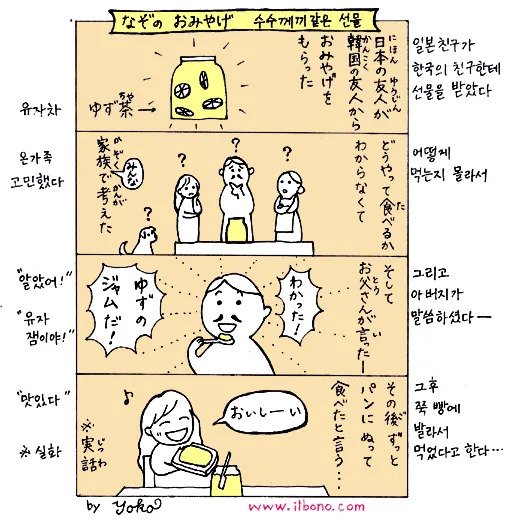 なぞの おみやげ 수수께끼같은 선물
日本の友人が
韓国の友人から
おみやげを
もらった
ゆず茶→
일본친구가
한국의 친구한테
선물을 받았다
유자차
どうやって食べるか
わからなくて
?
?
?
?
みんな
家族で考えた
어떻게
먹는지 몰라서
온가족
고민했다
そして
お父さんが言ったー
わかった!
ゆずの
ジャムだ!
그리고
아버지가
말씀하셨다ー
"알았어!"
"유자
잼이야!"
その後ずっと
パンにぬって
食べたと言う…
おいしーい
♪
※実話
그후
쭉 빵에
발라서
먹었다고 한다…
"맛있다"
※실화
by Yoko
www.ilbono.com